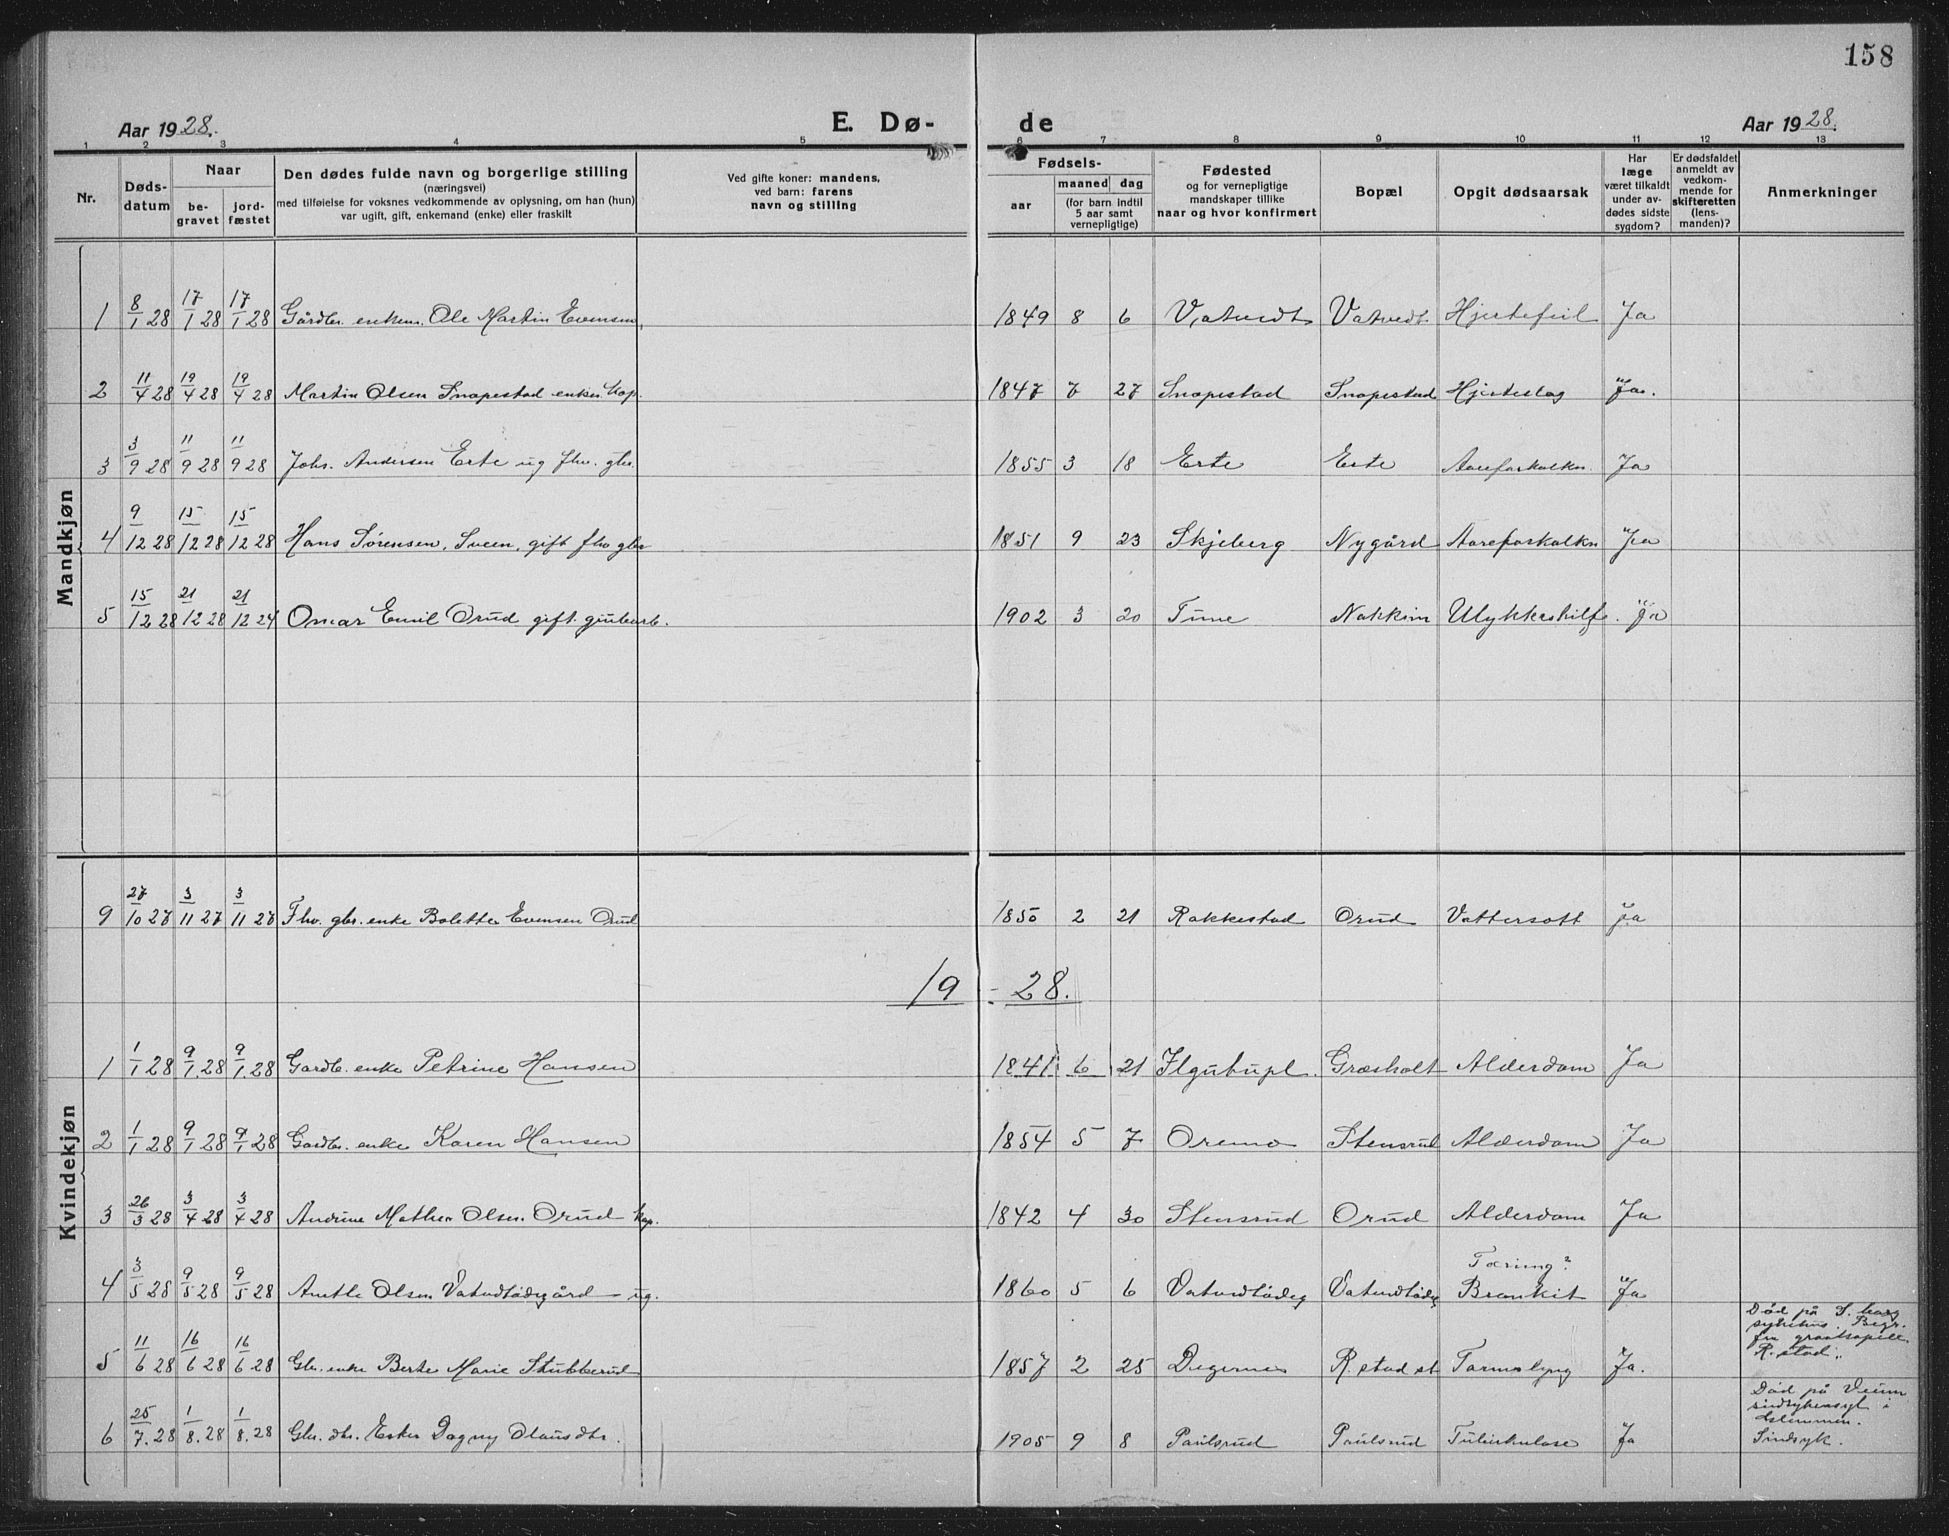 158
Aar 1928. E. Dø- de Aar 1928.
1 2 3 4 5 6 7 8 9 10 11 12 13
Nr. Døds-datum Naar be-gravet jord-fæstet Den dødes fulde navn og borgerlige stilling (næringsvei) med tilføielse for voksnes vedkommende av oplysning, om han (hun) var ugift, gift, enkemand (enke) eller fraskilt Ved gifte koner: mandens, ved barn: farens navn og stilling Fødsels- aar maaned dag (for barn indtil 5 aar samt vernepligtige) Fødested og for vernepligtige mandskaper tillike naar og hvor konfirmert Bopæl Opgit dødsaarsak Har læge været tilkaldt under av-dødes sidste sygdom? Er dødsfaldet anmeldt av vedkom-mende for skifteretten (lens-manden)? Anmerkninger
Mandkjøn
1 8/1 28 17/1 28 17/1 28 Gårdbr. enkem. Ole Martin Evensen 1849 8 6 Vatvedt Vatvedt Hjertefeil Ja
2 11/4 28 19/4 28 19/4 28 Martin Olsen Snapestad enkem. kap. 1847 7 27 Snapestad Snapestad Hjerteslag Ja.
3 3/9 28 11/9 28 11/9 28 Johs. Andersen Erte ug fhv. gbr. 1855 3 18 Erte Erte Aareforkalkn. Ja
4 9/12 28 15/12 28 15/12 28 Hans Sørensen, Sveen, gift fhv gbr 1851 9 23 Skjeberg Nygård Aareforkalkn Ja
5 15/12 28 21/12 28 21/12 24 Omar Emil Orud gift. grubearb. 1902 3 20 Tune Nakkim Ulykkestilf. Ja
Kvindekjøn
9 27/10 27 3/11 27 3/11 27 Fhv. gbr. enke Bolette Evensen Orud 1850 2 21 Rakkestad Orud Vattersott Ja
19 - 28.
1 1/1 28 9/1 28 9/1 28 Gardb. enke Petrine Hansen 1841 6 21 Græsholt Alderdom Ja
2 1/1 28 9/1 28 9/1 28 Gardbr. enke Karen Hansen 1854 5 7 Oremo Stensrud Alderdom Ja
3 26/3 28 3/4 28 3/4 28 Andrine Mathea Olsen Orud kap. 1842 4 30 Stensrud Orud Alderdom Ja
4 3/5 28 9/5 28 9/5 28 Anette Olsen Vatvedtødegård ug. 1860 5 6 Vatvedtødeg Vatvedtødeg Tæring? Bronkit Ja
5 11/6 28 16/6 28 16/6 28 Gbr. enke Berte Marie Stubberud 1857 2 25 Degernes R.stad st Tarmslyng Ja. Død på S. borg sykehus. Begr. fra gravkapellet R.stad.
6 25/7 28 1/8 28 1/8 28 Gbr. dtr. Ester Dagny Olausdtr. 1905 9 8 Paulsrud Paulsrud Tuberkulose Ja Død på Veum sindsykeasyl i Glemmen. Sindsyk.